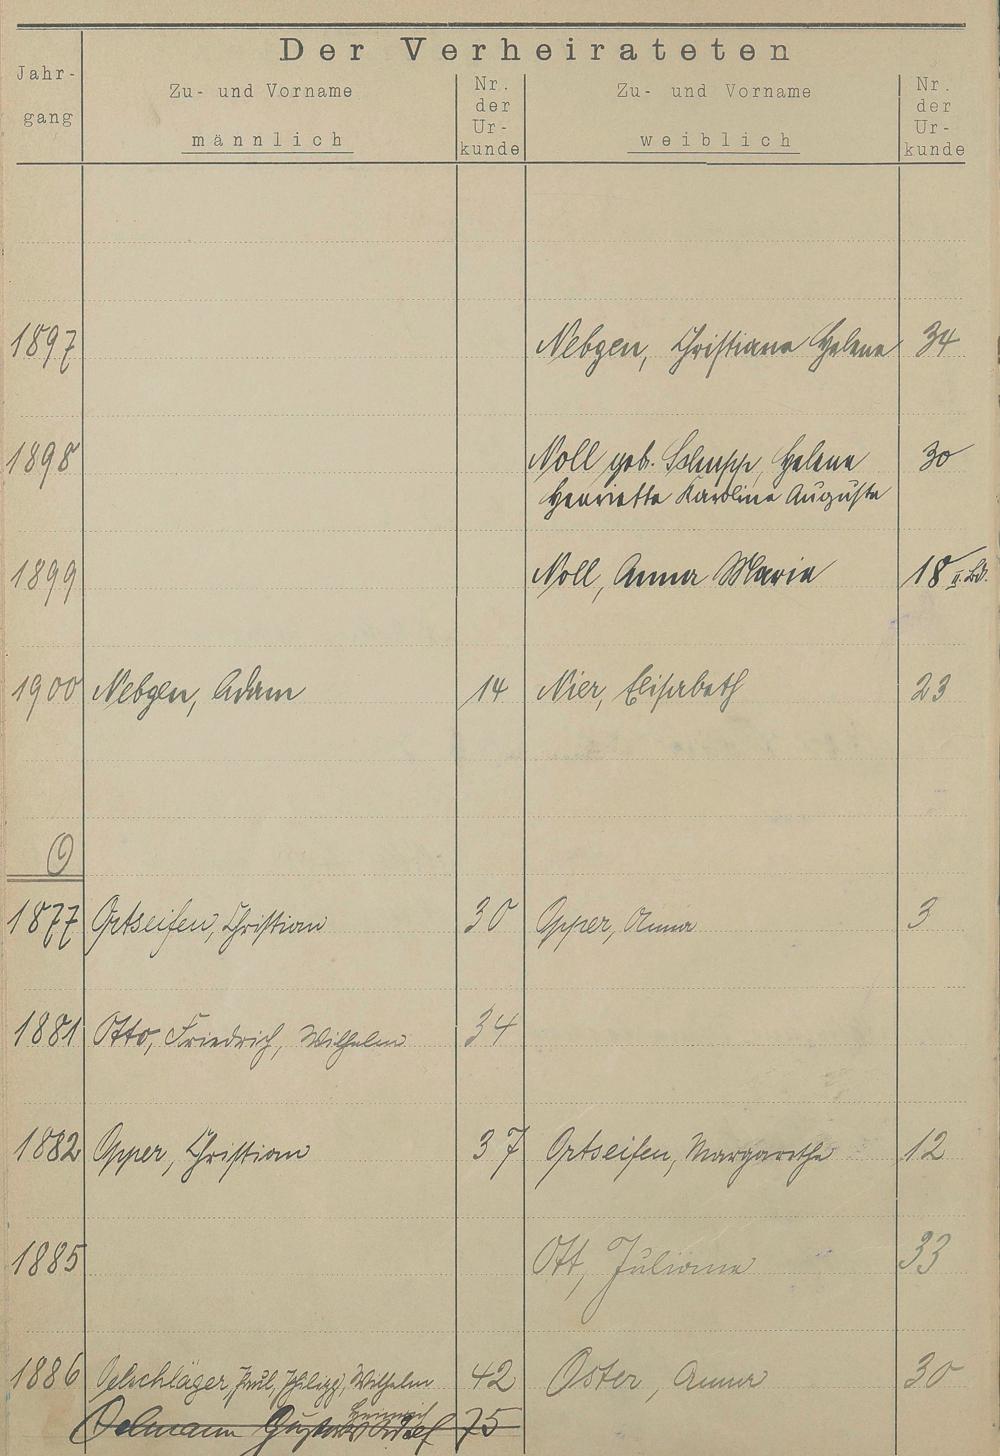 Der Verheirateten
Jahr-
gang
Zu- und Vorname
männlich
Nr.
der
Ur-
kunde
Zu- und Vorname
weiblich
Nr.
der
Ur-
kunde
1897 Nebgen, Christiana Helena 34
1898 Noll geb. Schupp, Helena 30
Henriette Karoline Auguste
1899 Noll, Anna Maria 18 II. Bd.
1900 Nebgen, Adam 14 Nier, Elisabeth 23
O
1877 Ortseifen, Christian 30 Opper, Anna 3
1881 Otto, Friedrich, Wilhelm 34
1882 Opper, Christian 37 Ortseifen, Margarethe 12
1885 Ott, Juliana 33
1886 Oelschläger, Paul, Philipp, Wilhelm 42 Oster, Anna 30
Heinrich
Oelmann Gustav Adolf 75